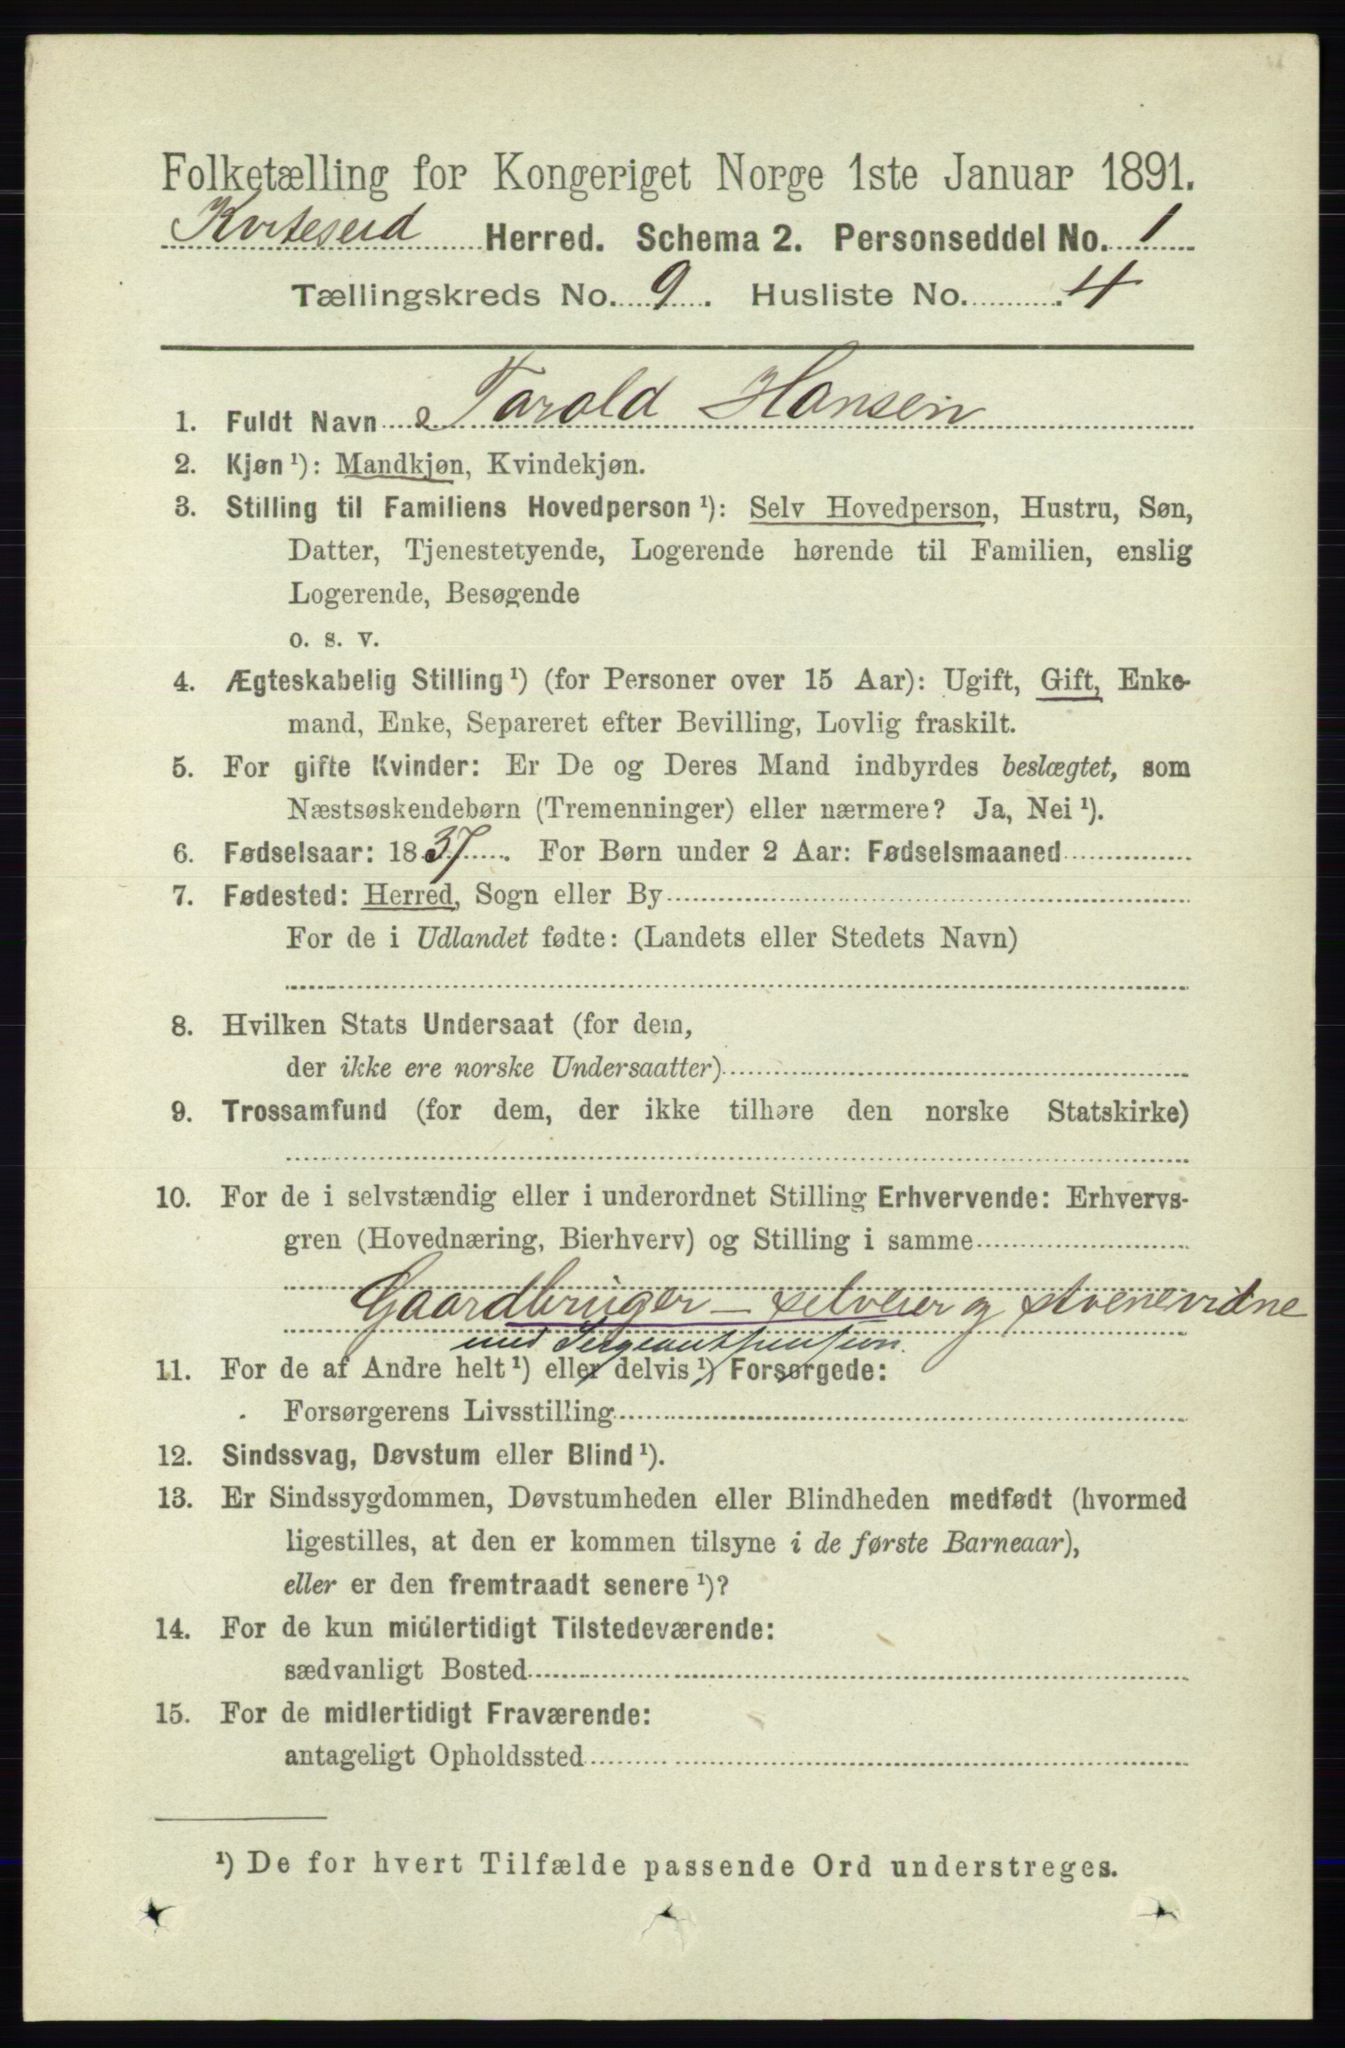 Folketælling for Kongeriget Norge 1ste Januar 1891.
Kviteseid Herred. Schema 2. Personseddel No. 1
Tællingskreds No. 9. Husliste No. 4
1. Fuldt Navn Tarald Hansen
2. Kjøn ¹): Mandkjøn, Kvindekjøn.
3. Stilling til Familiens Hovedperson ¹): Selv Hovedperson, Hustru, Søn,
Datter, Tjenestetyende, Logerende hørende til Familien, enslig
Logerende, Besøgende
o. s. v.
4. Ægteskabelig Stilling ¹) (for Personer over 15 Aar): Ugift, Gift, Enke-
mand, Enke, Separeret efter Bevilling, Lovlig fraskilt.
5. For gifte Kvinder: Er De og Deres Mand indbyrdes beslægtet, som
Næstsøskendebørn (Tremenninger) eller nærmere? Ja, Nei ¹).
6. Fødselsaar: 1837. For Børn under 2 Aar: Fødselsmaaned
7. Fødested: Herred, Sogn eller By
For de i Udlandet fødte: (Landets eller Stedets Navn)
8. Hvilken Stats Undersaat (for dem,
der ikke ere norske Undersaatter)
9. Trossamfund (for dem, der ikke tilhøre den norske Statskirke)
10. For de i selvstændig eller i underordnet Stilling Erhvervende: Erhvervs-
gren (Hovednæring, Bierhverv) og Stilling i samme
Gaardbruger – selveier og stvenevidne
med Sergeantspension.
11. For de af Andre helt ¹) eller delvis ¹) Forsørgede:
Forsørgerens Livsstilling
12. Sindssvag, Døvstum eller Blind ¹).
13. Er Sindssygdommen, Døvstumheden eller Blindheden medfødt (hvormed
ligestilles, at den er kommen tilsyne i de første Barneaar),
eller er den fremtraadt senere ¹)?
14. For de kun midlertidigt Tilstedeværende:
sædvanligt Bosted
15. For de midlertidigt Fraværende:
antageligt Opholdssted
¹) De for hvert Tilfælde passende Ord understreges.